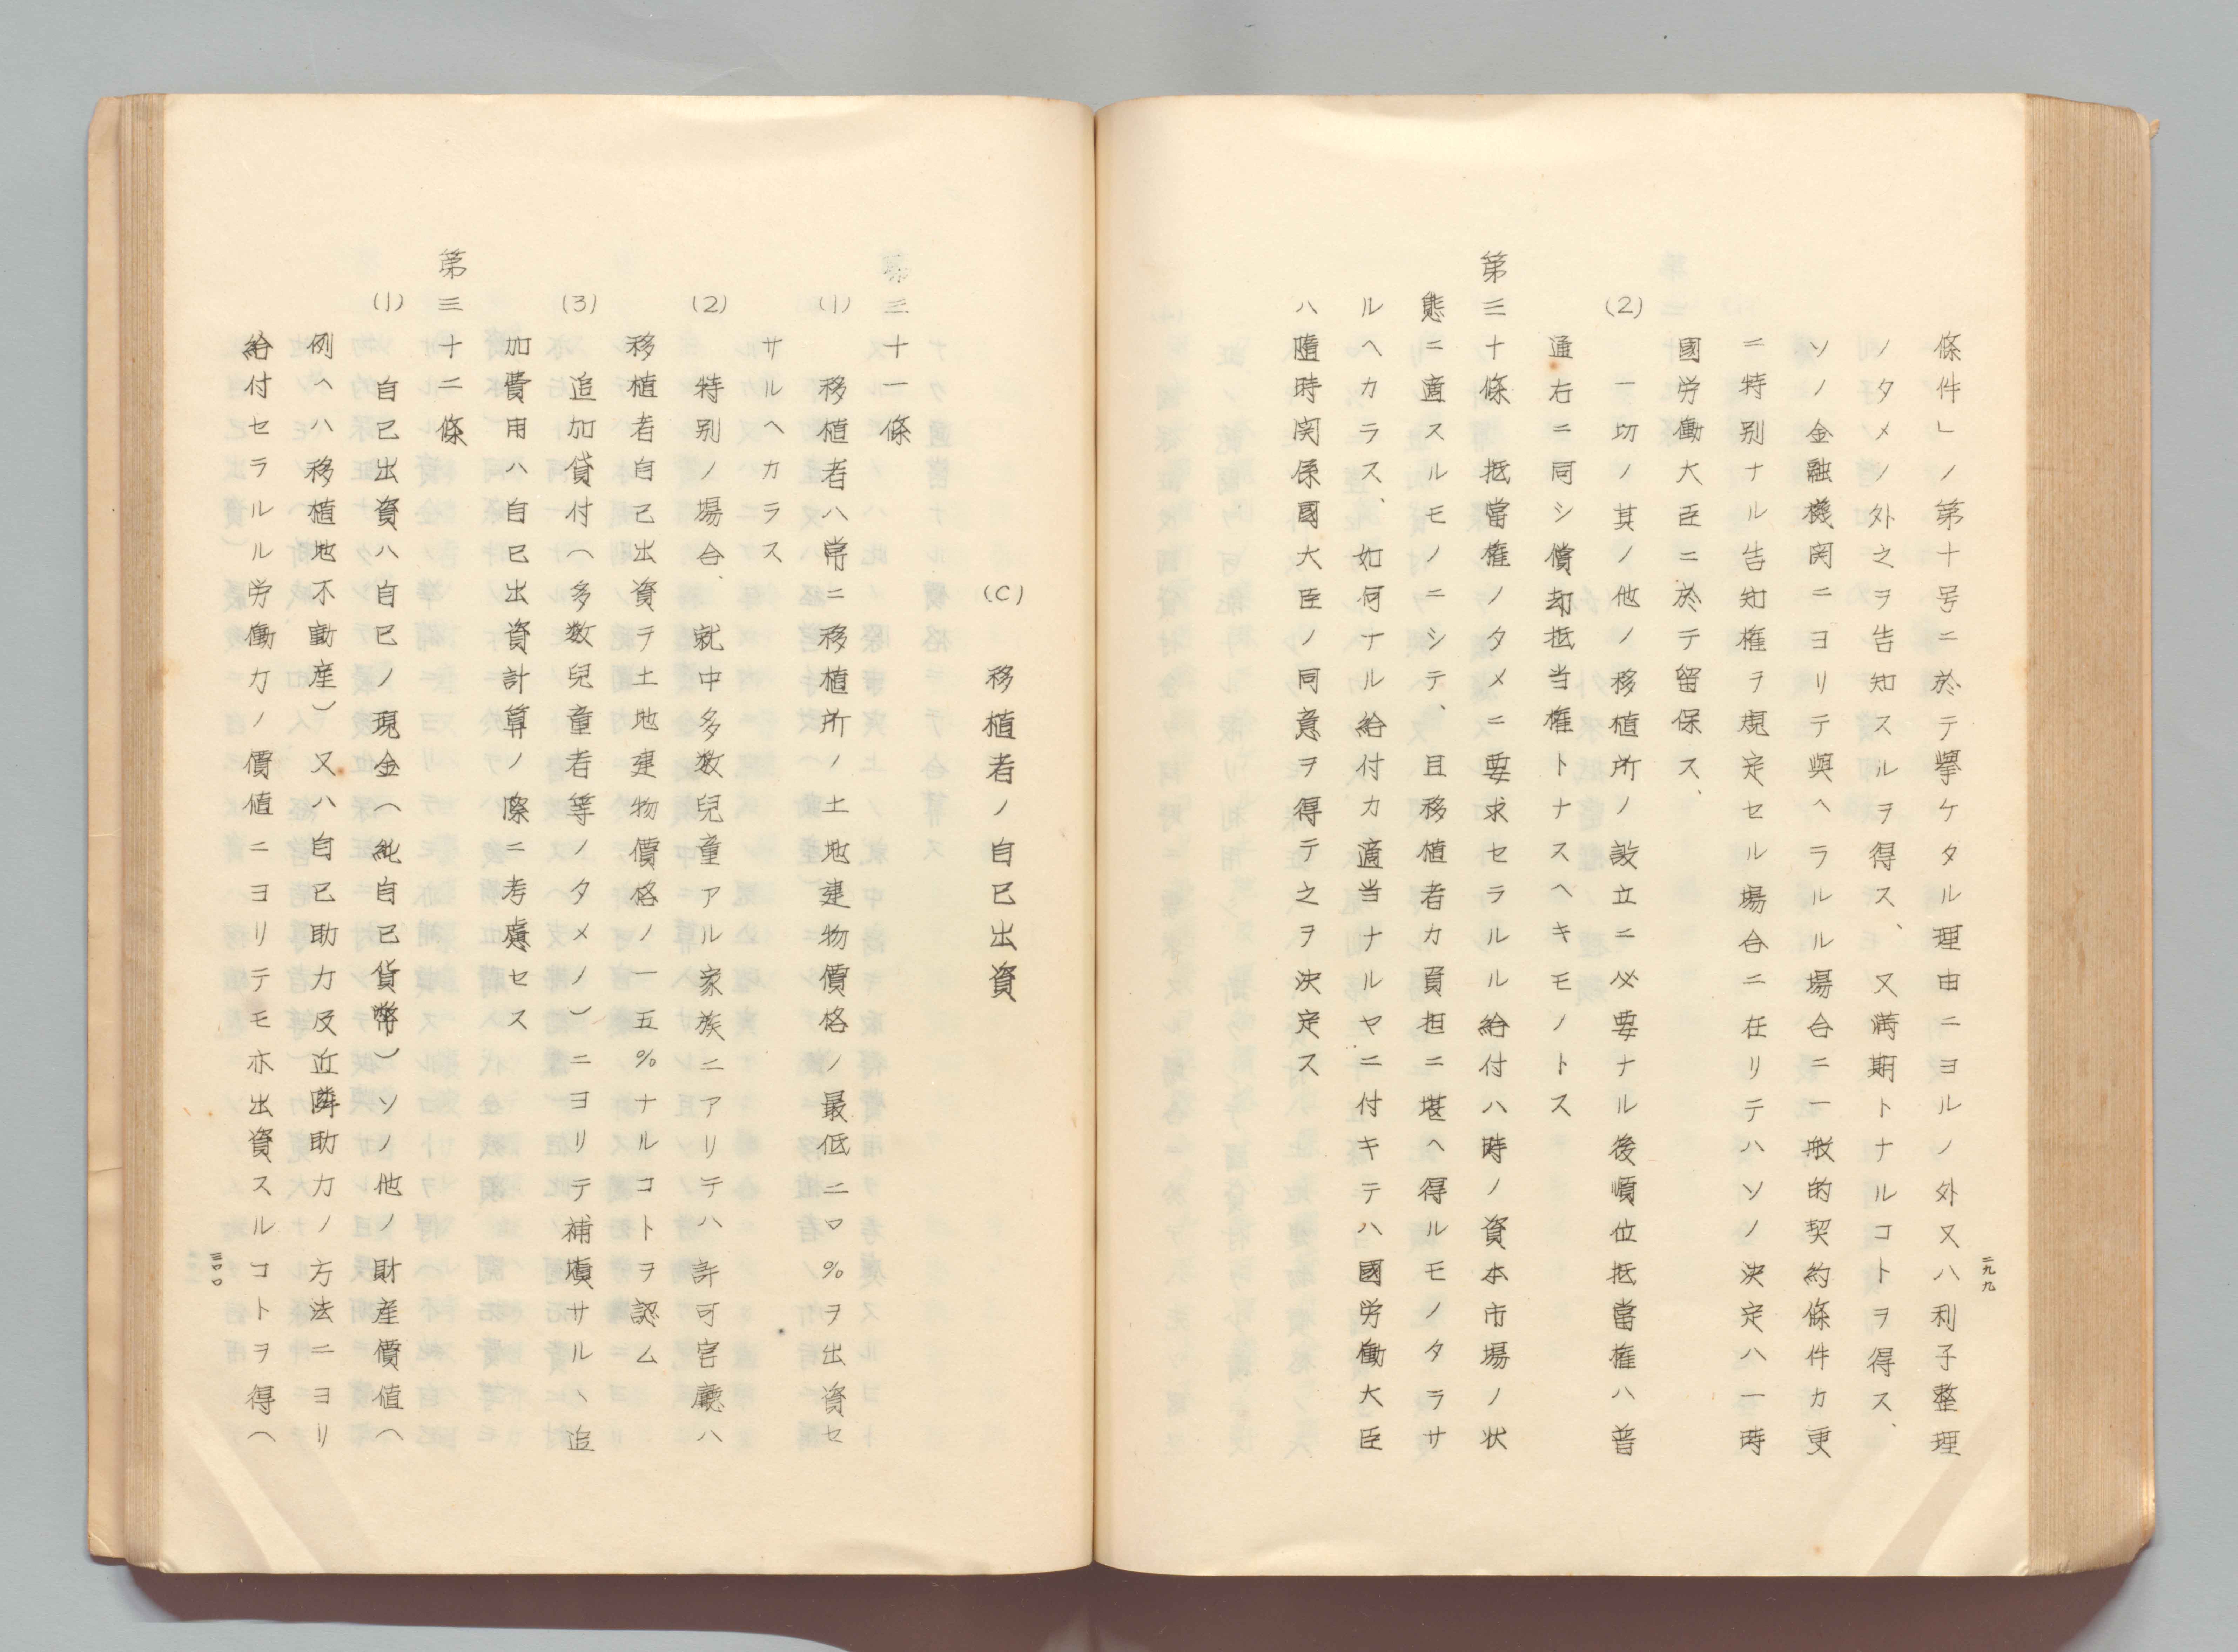 條件」ノ第十号ニ於テ擧ケタル理由ニヨルノ外又ハ利子整理
ノタメノ外之ヲ告知スルヲ得ス、又満期トナルコトヲ得ス、
ソノ金融機関ニヨリテ與ヘラルル場合ニ一般的契約條件カ更
ニ特別ナル告知権ヲ規定セル場合ニ在リテハソノ決定ハ一時
國労働大臣ニ於テ留保ス、
(2)　一切ノ其ノ他ノ移植所ノ設立ニ必要ナル後順位抵當権ハ普
通右ニ同シ償却抵当権トナスヘキモノトス
第三十條　抵當権ノタメニ要求セラルル給付ハ時ノ資本市場ノ状
態ニ適スルモノニシテ、且移植者カ負担ニ堪ヘ得ルモノタラサ
ルヘカラス、如何ナル給付カ適当ナルヤニ付キテハ國労働大臣
ハ隨時関係國大臣ノ同意ヲ得テ之ヲ決定ス
二九九
(C)　移植者ノ自己出資
第三十一條
(1)　移植者ハ常ニ移植所ノ土地建物價格ノ最低二〇%ヲ出資セ
サルヘカラス
(2)　特別ノ場合、就中多数兒童アル家族ニアリテハ許可官廳ハ
移植者自己出資ヲ土地建物價格ノ一五%ナルコトヲ認ム
(3)　追加貸付(多数兒童者等ノタメノ)ニヨリテ補塡サルヽ追
加費用ハ自己出資計算ノ際ニ考慮セス
第三十二條
(1)　自己出資ハ自己ノ現金(純自己貨幣)ソノ他ノ財産價値(
例ヘハ移植地不動産)又ハ自己助力及近隣助力ノ方法ニヨリ
給付セラルル労働力ノ價値ニヨリテモ亦出資スルコトヲ得(
三〇〇